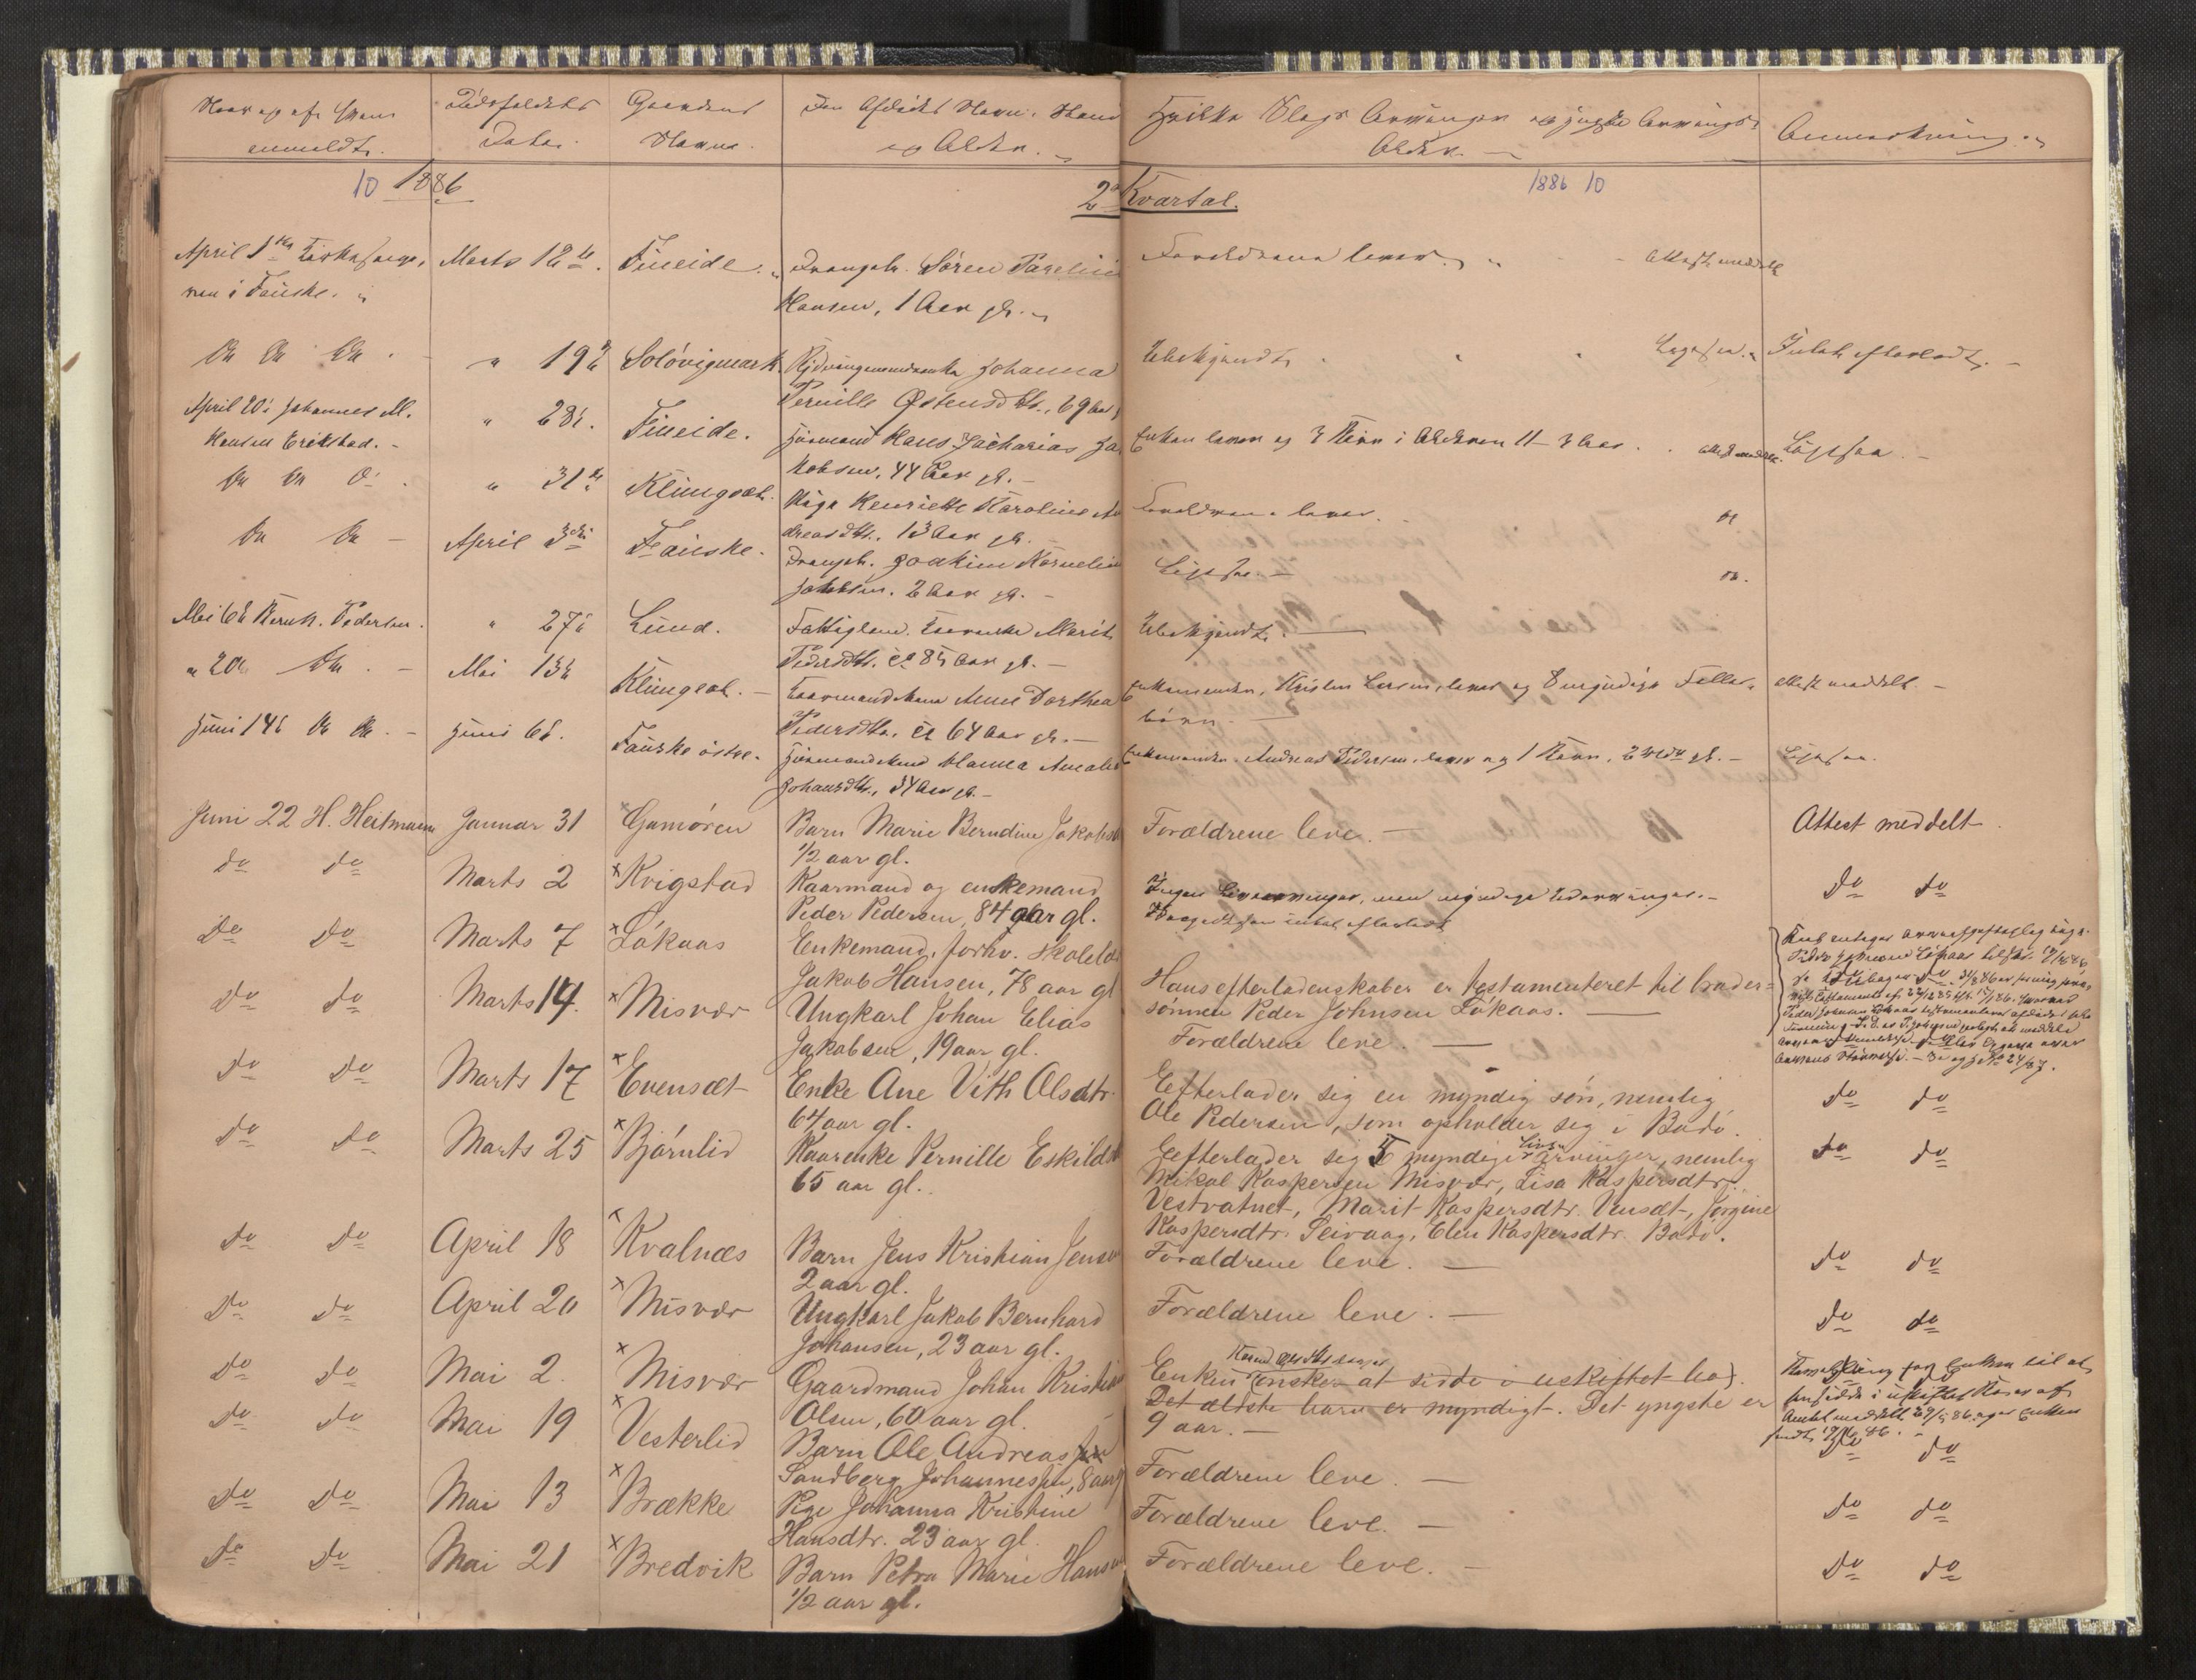 Naar og af hvem
anmeldt.
Dødsfaldets
Datum.
Gaardens
Navn.
Den Afdødes Navn, Stand
og Alder.
Hvilke Slags Arvinger og yngste Arvings
Alder.
Anmærkning.
10 1886
1886 10
2det Kvartal.
April 1ste Kirkesanger,
ren i Fauske.
Marts 12te.
Fineide.
Drengeb. Søren Parelius
Hansen, 1 Aar gl.
Forældrene lever.
Attest meddelt
Do Do Do.
" 19de
Solóvigmark.
Johanna
Pernille Østensdtr., 69 Aar
Ubekjendt.
Ligesaa.
Intet efterladt.
April 20de Johannes M.
Hansen Erikstad.
" 28de.
Fineide.
Husmand Hans Zacharias Ja
kobsen, 44 Aar gl.
Enken lever og 3 Børn i Alderen 11-3 Aar.
Attest meddelt.
Ligesaa.
Do Do Do.
" 31te
Klungset.
Pige Henriette Karoline An
dreasdtr., 13 Aar gl.
Forældrene lever.
Do
Do Do
April 3die
Fauske.
Drengeb. Joakim Kornelius
Jakobsen. 2 Aar gl.
Ligesaa.
Do.
Mai 6te Bernh. Pedersen.
" 27de
Lund.
Fattiglem. Marit
Pedersdtr. ca 85 Aar gl.
Ubekjendt.
" 20de Do.
Mai 13de
Klungset.
Kaarmandskone Anne Dorthea
Pedersdtr. ca 64 Aar gl.
Enkemanden, Kristen Larsen, lever og 8 myndige Fælles-
børn.
Attest meddelt.
Juni 14de Do Do.
Juni 6te.
Fauske østre.
Husmandskone Hanna Amalie
Johansdtr., 34 Aar gl.
Enkemanden Andreas Pedersen, lever og 1 Barn, 2 gl.
Ligesaa.
Juni 22 H. Heitmann
Januar 31
Gamøren
Barn Marie Berndine Jakobsd
1/2 aar gl.
Forældrene leve.
Attest meddelt.
do do
Marts 2
Kvigstad
Kaarmand og enkemand
Peder Pedersen, 84 aar gl.
Ingen Livsarvinger, men myndige Udarvinger.
intet efterladt
do do
do do
Marts 7
Løkaas
Enkemand, forhv. skolelær
Jakob Hansen, 78 aar gl
Hans efterladenskaber er testamenteret til broder=
sønnen Peder Johnsen Løkaas.
do do
Marts 14.
Misvær
Ungkarl Johan Elias
Jakobsen, 19 aar gl.
Forældrene leve.
do do
Marts 17
Evensæt
Enke Ane Vith Olsdtr.
64 aar gl.
Eefterlader sig en myndig søn, nemlig
Ole Pedersen, som opholder sig i Bodø.
do do
do do
Marts 25
Bjørnlid
Kaarenke Pernille Eskildsd
65 aar gl.
Eefterlader sig 5 myndige Livs Arvinger, nemlig
Mikal Kaspersen Misvær, Lisa Kaspersdtr.
Vestvatnet, Marit Kaspersdtr. Vensæt, Jørgine
Kaspersdtr. Seivaag, Elen Kaspersdtr. Bodø.
do do
do do
April 18
Kvalnæs
Barn Jens Kristian Jensen
2 aar gl.
Forældrene leve.
do do
do do
April 20
Misvær
Ungkarl Jakob Bernhard
Johansen, 23 aar gl.
Forældrene leve.
do do
do do
Mai 2.
Misvær
Gaardmand Johan Kristian
Olsen, 60 aar gl.
Enken ønsker at sidde i uskiftet bo.
Det ældste barn er myndigt. Det yngste er
9 aar.
Bevilling for Enken til at
hensidde i uskiftet Bo af
Amtet meddelt 29/5 86
do do
Mai 19
Vesterlid
Barn Ole Andreas
Sandberg Johannessen, 8 aar g
Forældrene leve.
do do
do do
Mai 13
Brække
Pige Johanna Kristine
Hansdtr. 23 aar gl.
Forældrene leve.
do do
do do
Mai 21
Bredvik
Barn Petra Marie Hansd
1/2 aar gl.
Forældrene leve.
do do